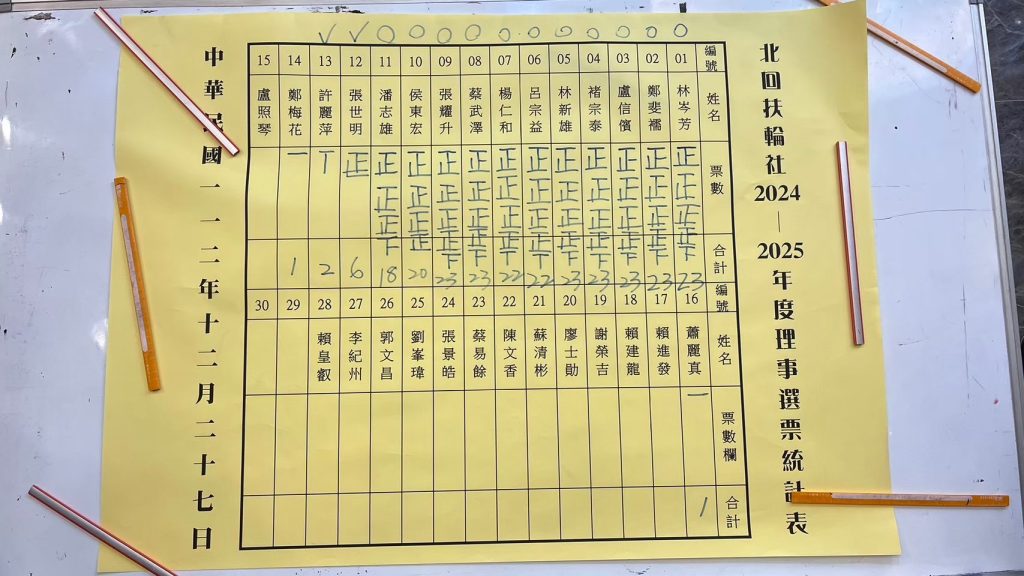 北回扶輪社2024—2025年度理事選票統計表
○ ○ ○ ○ ○ ○ ○ ○ ○ ○ ○ V V
編號 姓名 票數 合計
01 林岑芳 正正正正下 23
02 鄭斐襦 正正正正下 23
03 盧信儐 正正正正下 23
04 褚宗泰 正正正正下 23
05 林新雄 正正正正下 23
06 呂宗益 正正正正丅 22
07 楊仁和 正正正正丅 22
08 蔡武澤 正正正正下 23
09 張耀升 正正正正下 23
10 侯東宏 正正正正 20
11 潘志雄 正正正下 18
12 張世明 正一 6
13 許麗萍 丅 2
14 鄭梅花 一 1
15 盧照琴
編號 姓名 票數欄 合計
16 蕭麗真 一 1
17 賴進發
18 賴建龍
19 謝榮吉
20 廖士勛
21 蘇清彬
22 陳文香
23 蔡易餘
24 張景皓
25 劉峯瑋
26 郭文昌
27 李紀州
28 賴皇叡
29
30
中華民國一一二年十二月二十七日